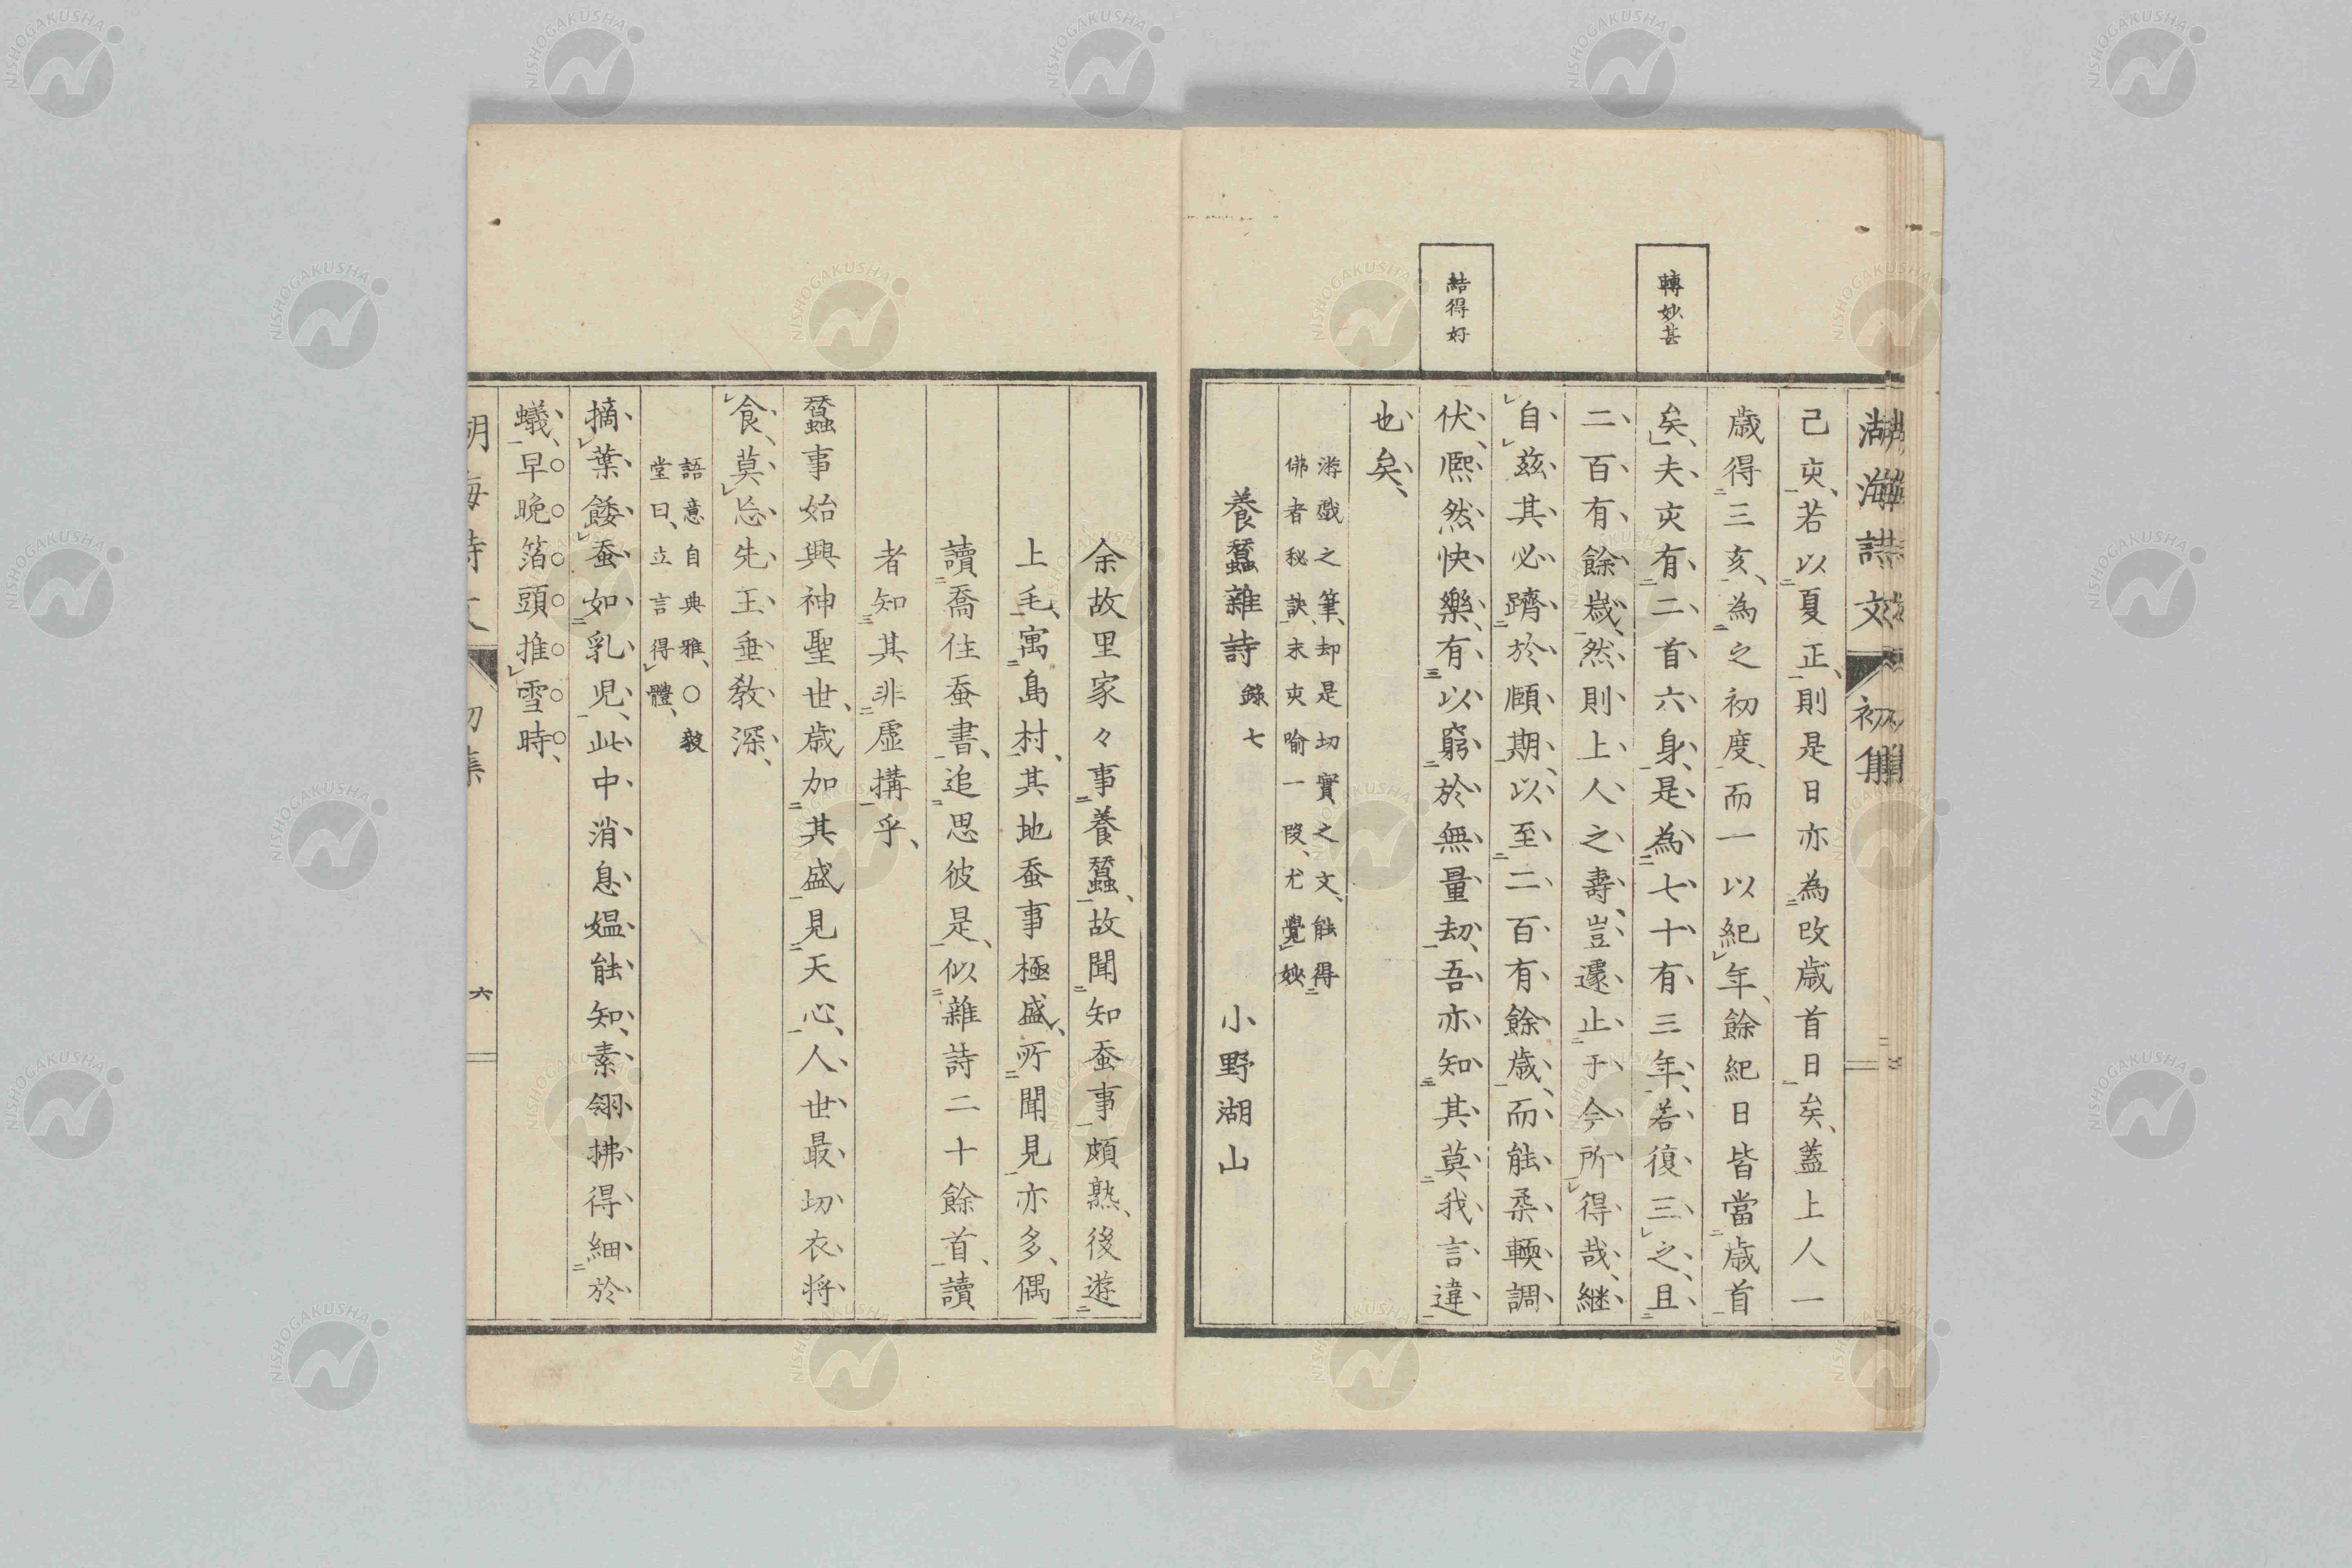 湖海詩文 初集
己亥若以夏正則是日亦為改歳首日矣蓋上人一
歳得三亥為之初度而一以紀年餘紀日皆當歳首
轉妙甚
矣夫亥有二首六身是為七十有三年若復三之且
二百有餘歳然則上人之壽豈遽止于今所得哉継
自茲其必躋於頤期以至二百有餘歳而能柔輭調
結得好
伏熈然快樂有以窮於無量劫吾亦知其莫我言違
也矣
游戯之筆却是切實之文能得
佛者秘訣末亥喻一段尤覺妙
養蠶雜詩 錄七 小野湖山
余故里家々事養蠶故聞知蚕事頗熟後遊
上毛寓島村其地蚕事極盛所聞見亦多偶
讀喬住蚕書追思彼是似雜詩二十餘首讀
者知其非虛搆乎
蠶事始興神聖世歳加其盛見天心人世最切衣将
食莫忘先王垂敎深
語意自典雅○毅
堂曰立言得體
摘葉餧蚕如乳児此中消息媼能知素翎拂得細於
蟻早晩箔頭推雪時
六
NISHOGAKUSHA